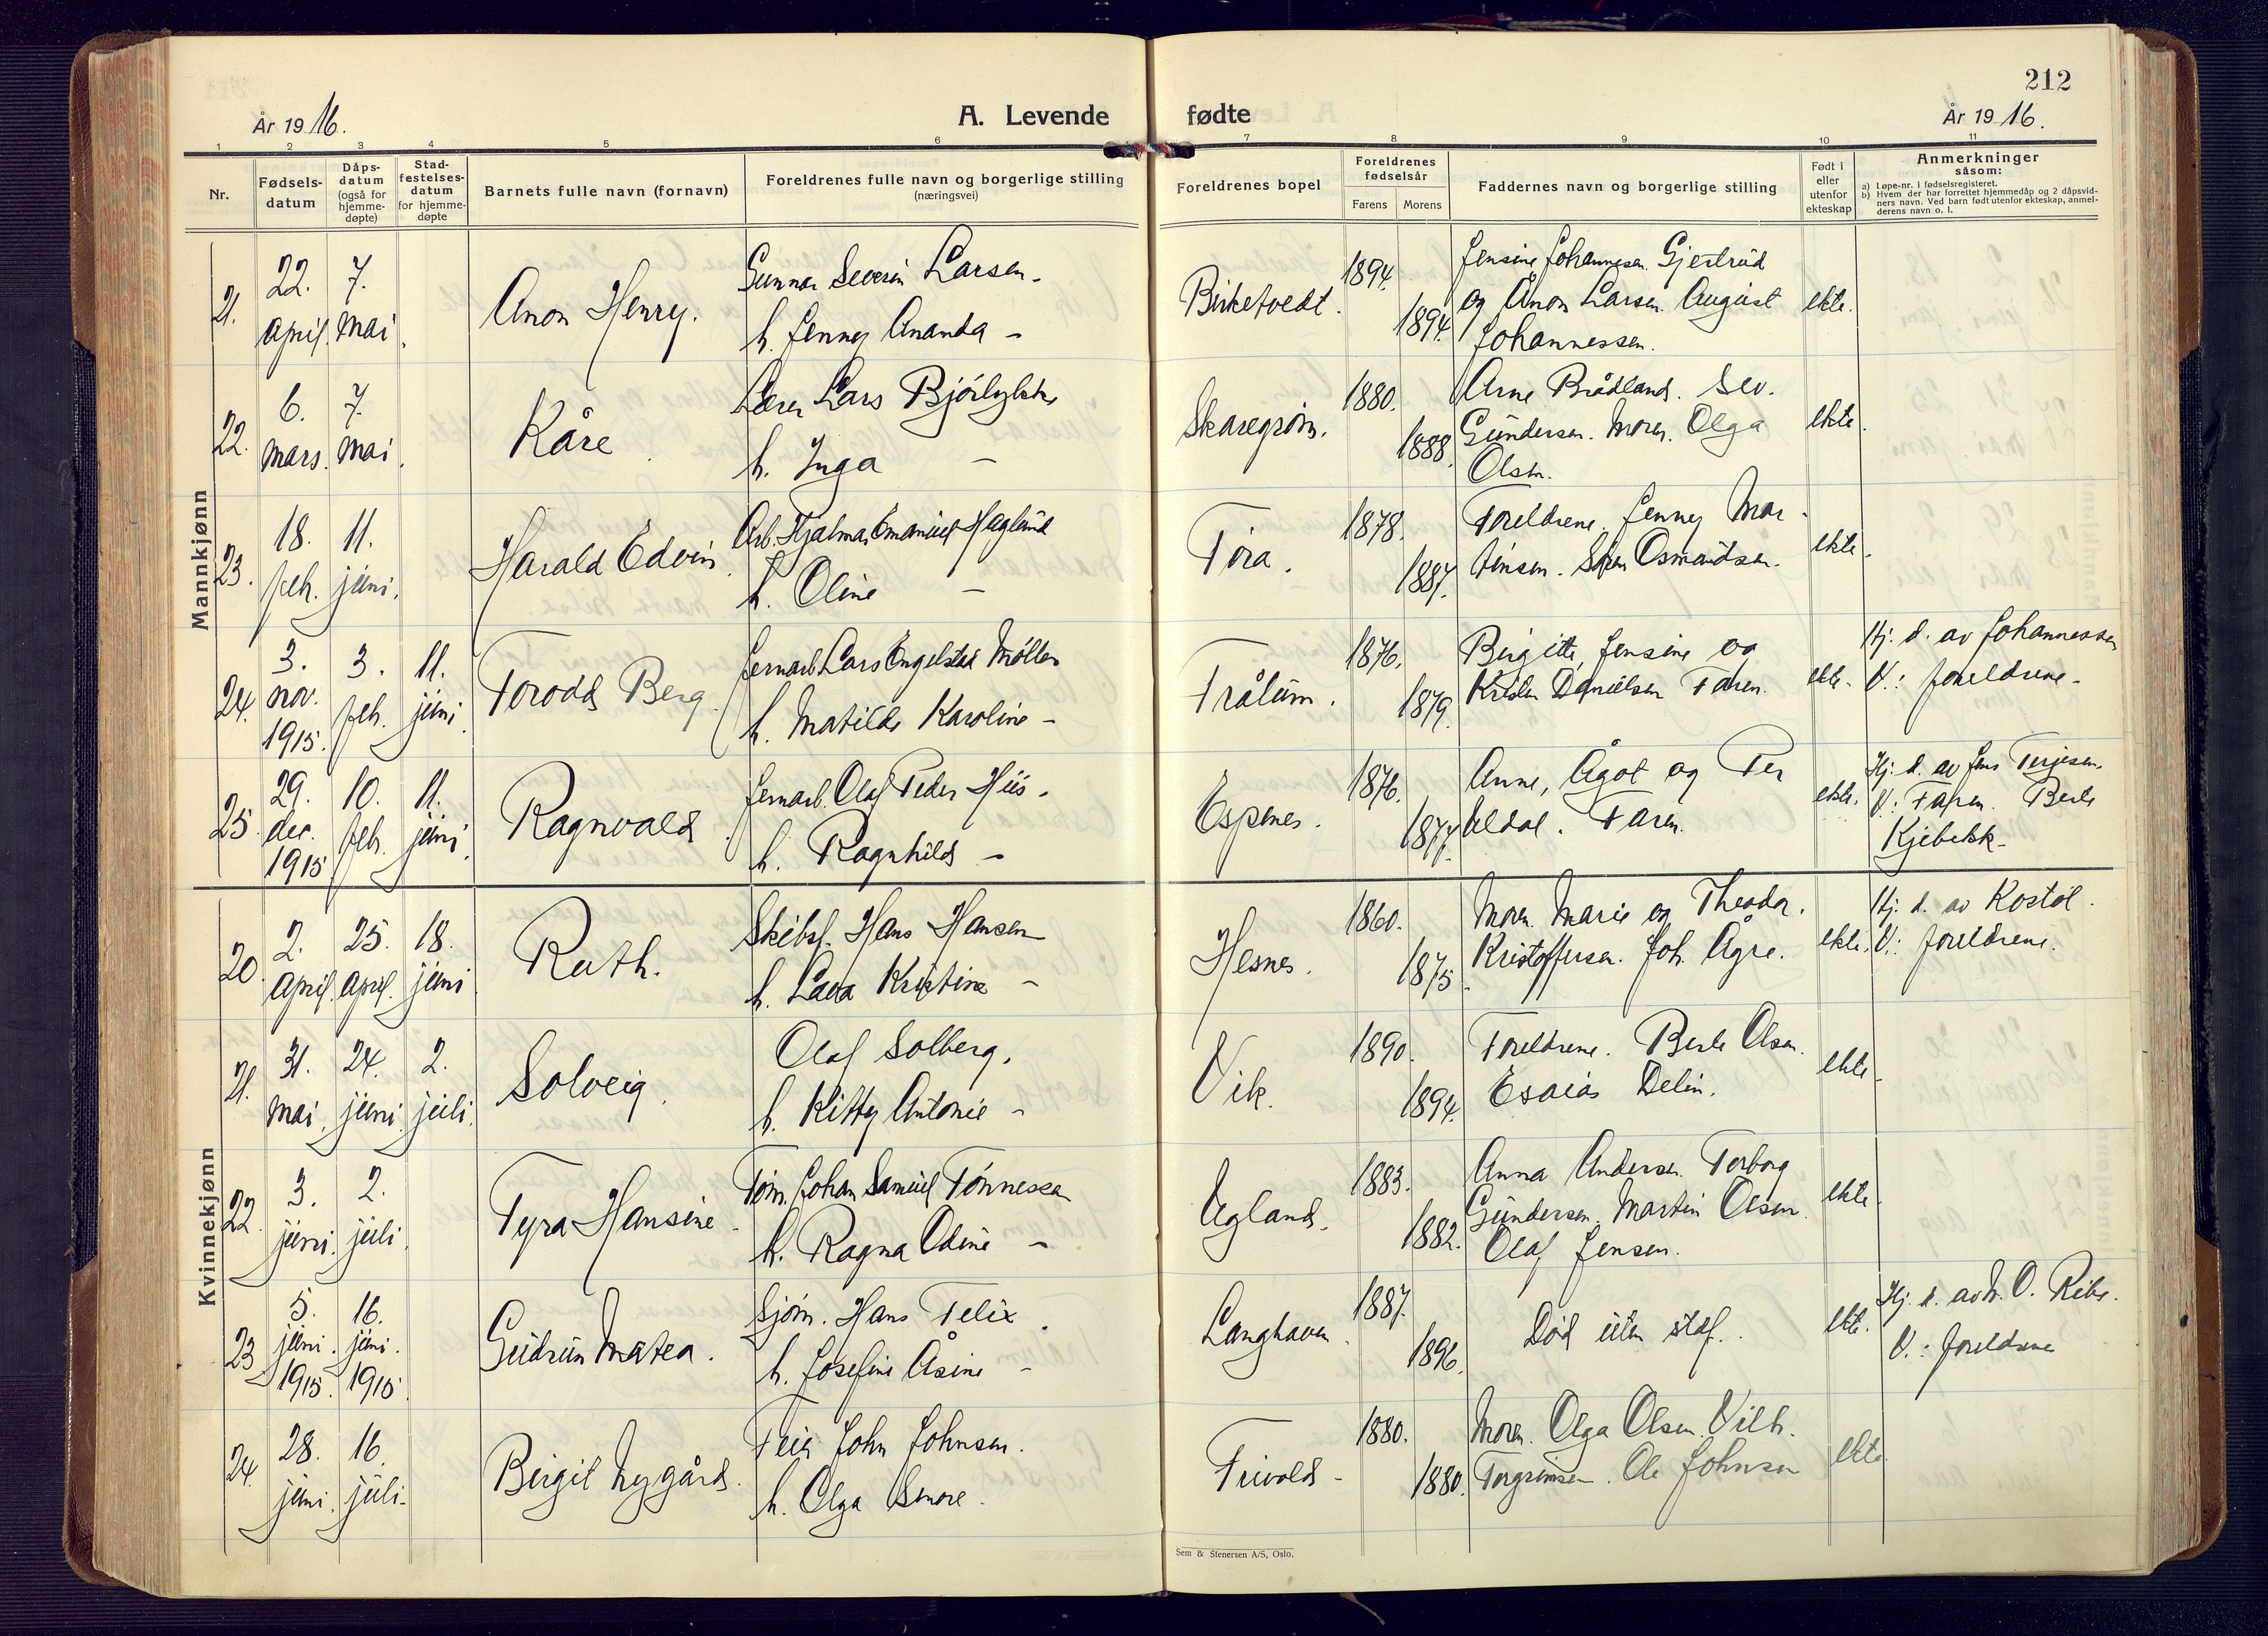 212
År 1916.
A. Levende fødte
År 1916.
1 2 3 4 5 6 7 8 9 10 11
Nr.
Fødsels-
datum
Dåps-
datum
(også for
hjemme-
døpte)
Stad-
festelses-
datum
for hjemme-
døpte
Barnets fulle navn (fornavn)
Foreldrenes fulle navn og borgerlige stilling
(næringsvei)
Foreldrenes bopel
Foreldrenes
fødselsår
Farens Morens
Faddernes navn og borgerlige stilling
Født i
eller
utenfor
ekteskap
Anmerkninger
såsom:
a) Løpe-nr. i fødselsregisteret.
b) Hvem der har forrettet hjemmedåp og 2 dåpsvid-
ners navn. Ved barn født utenfor ekteskap, anmel-
derens navn o. l.
Mannkjønn
21.
22.
april.
7.
mai.
Anon Henry.
Gunnar Severin Larsen.
h. Jenney Amanda -
Birketvedt.
1894.
1894.
Jensine Johannesen. Gjertrud
og Anon Larsen. August
Johannessen.
ekte.
22.
6.
mars.
7.
mai.
Kåre.
Lærer Lars
h. Inga -
Skaregrøm.
1880.
1888.
Arne Brådland. Sev.
Gundersen. Moren. Olga
Olsen.
ekte.
23.
18.
feb.
11.
juni.
Harald Edvin.
Arb. Hjalmar Emanuel Haglund
h. Oline -
Tora.
1878.
1887.
Foreldrene. Jenney Mar-
tinsen. Søren Osmundsen.
ekte.
24.
3.
nov.
1915.
3.
feb.
11.
juni.
Torodd Berg.
Jernarb. Lars Engelstad Møller
h. Matilde Karoline -
Trålum.
1876.
1879.
Birgitte, Jensine og
Kristen Danielsen. Faren.
ekte.
Hj. d. av Johannessen
V.: foreldrene.
25.
29.
dec.
1915
10.
feb.
11.
juni.
Ragnvald.
Jernarb. Olaf Peder Hiis.
h. Ragnhild -
Espenes.
1876.
1877.
Anne, Ågot og Per
Uldal. Faren.
ekte.
Hj. d. av Jens Terjesen.
V: Faren. Berte
Kjebekk.
Kvinnekjønn
20.
2.
april.
25.
april.
18.
juni
Ruth.
Skibsf. Hans Hansen
h. Lava Kristine -
Hesnes.
1860.
1875.
Moren. Marie og Theodor.
Kristoffersen. Joh. Ågre.
ekte.
Hj. d. av Kostøl.
V: foreldrene.
21.
31.
mai.
24.
juni.
2.
juli.
Solveig.
Olaf Solberg.
h. Kitty Antonie -
Vik.
1890.
1894.
Foreldrene. Berte Olsen.
Esaias Delin.
ekte.
22.
3.
juni.
2.
juli.
Tyra Hansine.
Tøm. Johan Samuel Tønnessen
h. Ragna Odine -
Ugland.
1883.
1882.
Anna Andersen. Torborg
Gundersen. Martin Olsen.
Olaf Jensen.
ekte.
23
5.
juni.
1915.
16.
juni.
1915.
Gudrun Matea.
Sjøm. Hans Felix.
h. Josefine Åsine -
Langhaven.
1887.
1896.
Død uten staf.
ekte.
Hj. d. av N. O. Ribe.
V.: foreldrene
24.
28.
juni.
16.
juli.
Birgit Nygård.
Feier John Johnsen.
h. Olga Lenore.
Frivold.
1880.
1880.
Moren. Olga Olsen. Vilh.
Torgrimsen. Ole Johnsen
ekte
Sem & Stenersen A/S, Oslo.